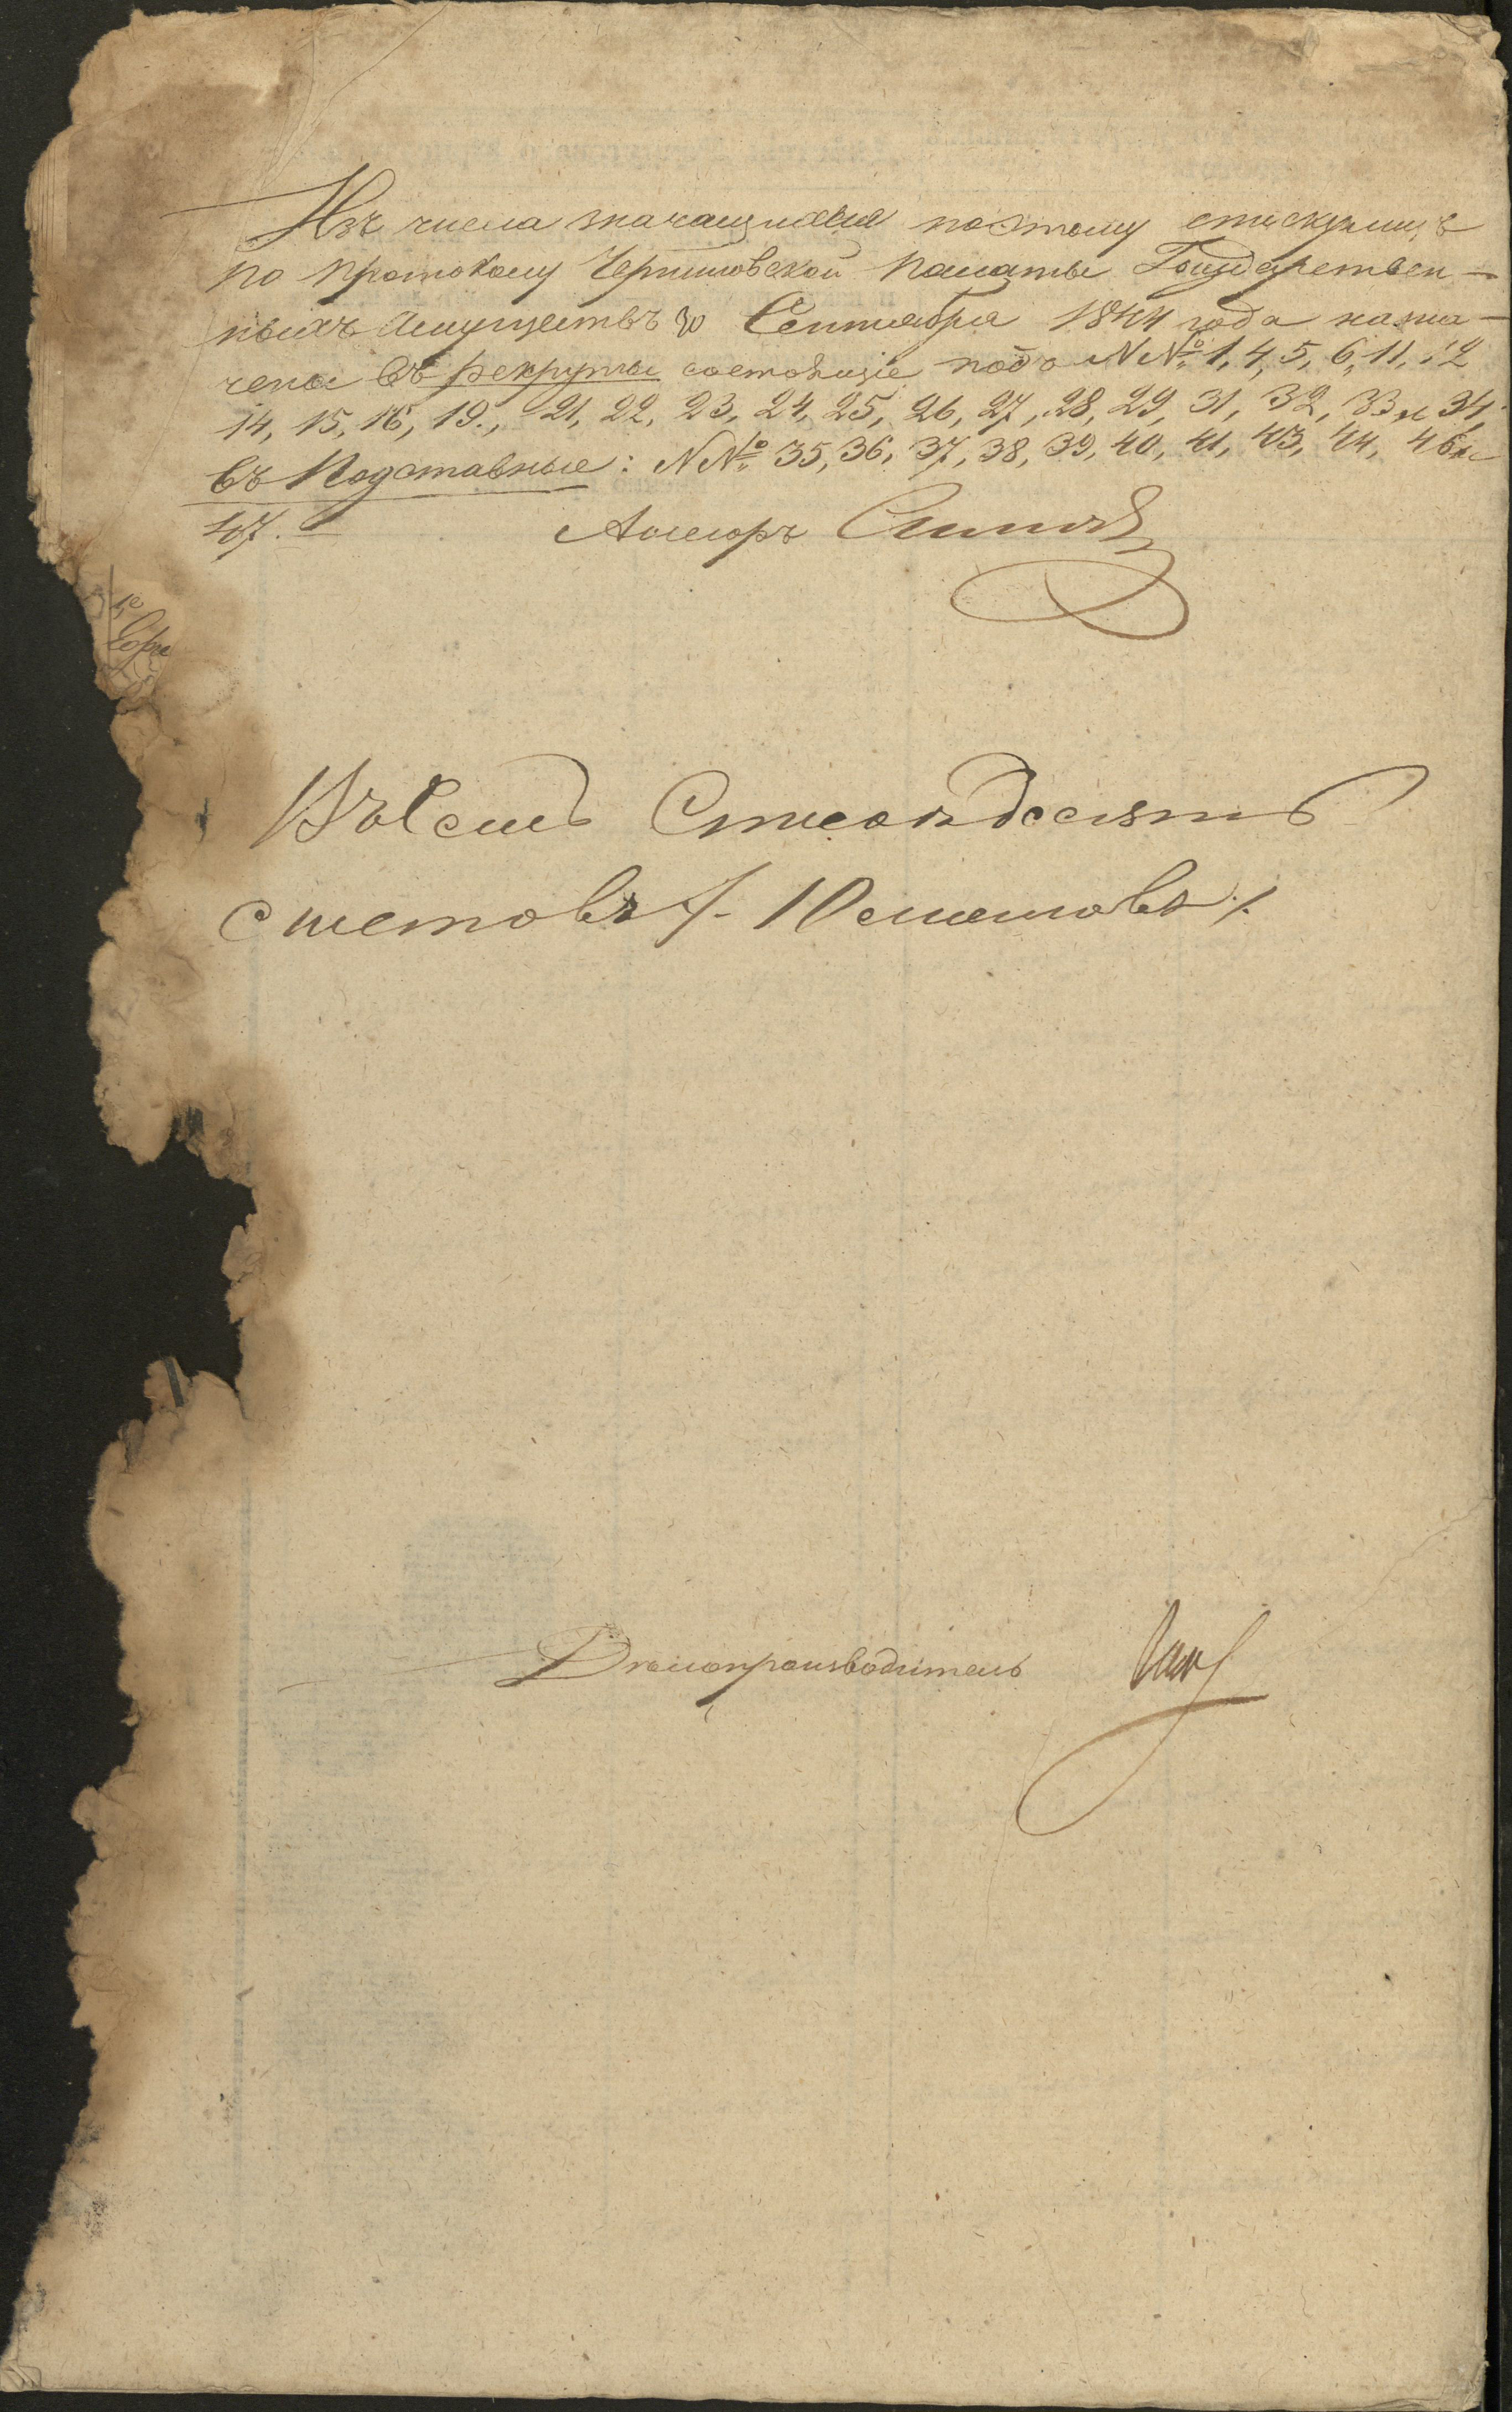 Изъ числа значащихся поэтому списку лицъ
по протоколу Черниговской Палаты Государствен-
ныхъ Имуществъ 30 Сентября 1844 года назна-
чены въ рекруты состоящіе подъ №№ 1, 4, 5, 6, 11, 12
14, 15, 16, 19, 21, 22, 23, 24, 25, 26, 27, 28, 29, 31, 32, 33 и 34,
въ Подставные: №№ 35, 36, 37, 38, 39, 40, 41, 43, 44, 46 и
47.
Асессоръ
Въ Семъ Списке десять
листовъ /-10 листовъ/.
Дѣлопроизводитель